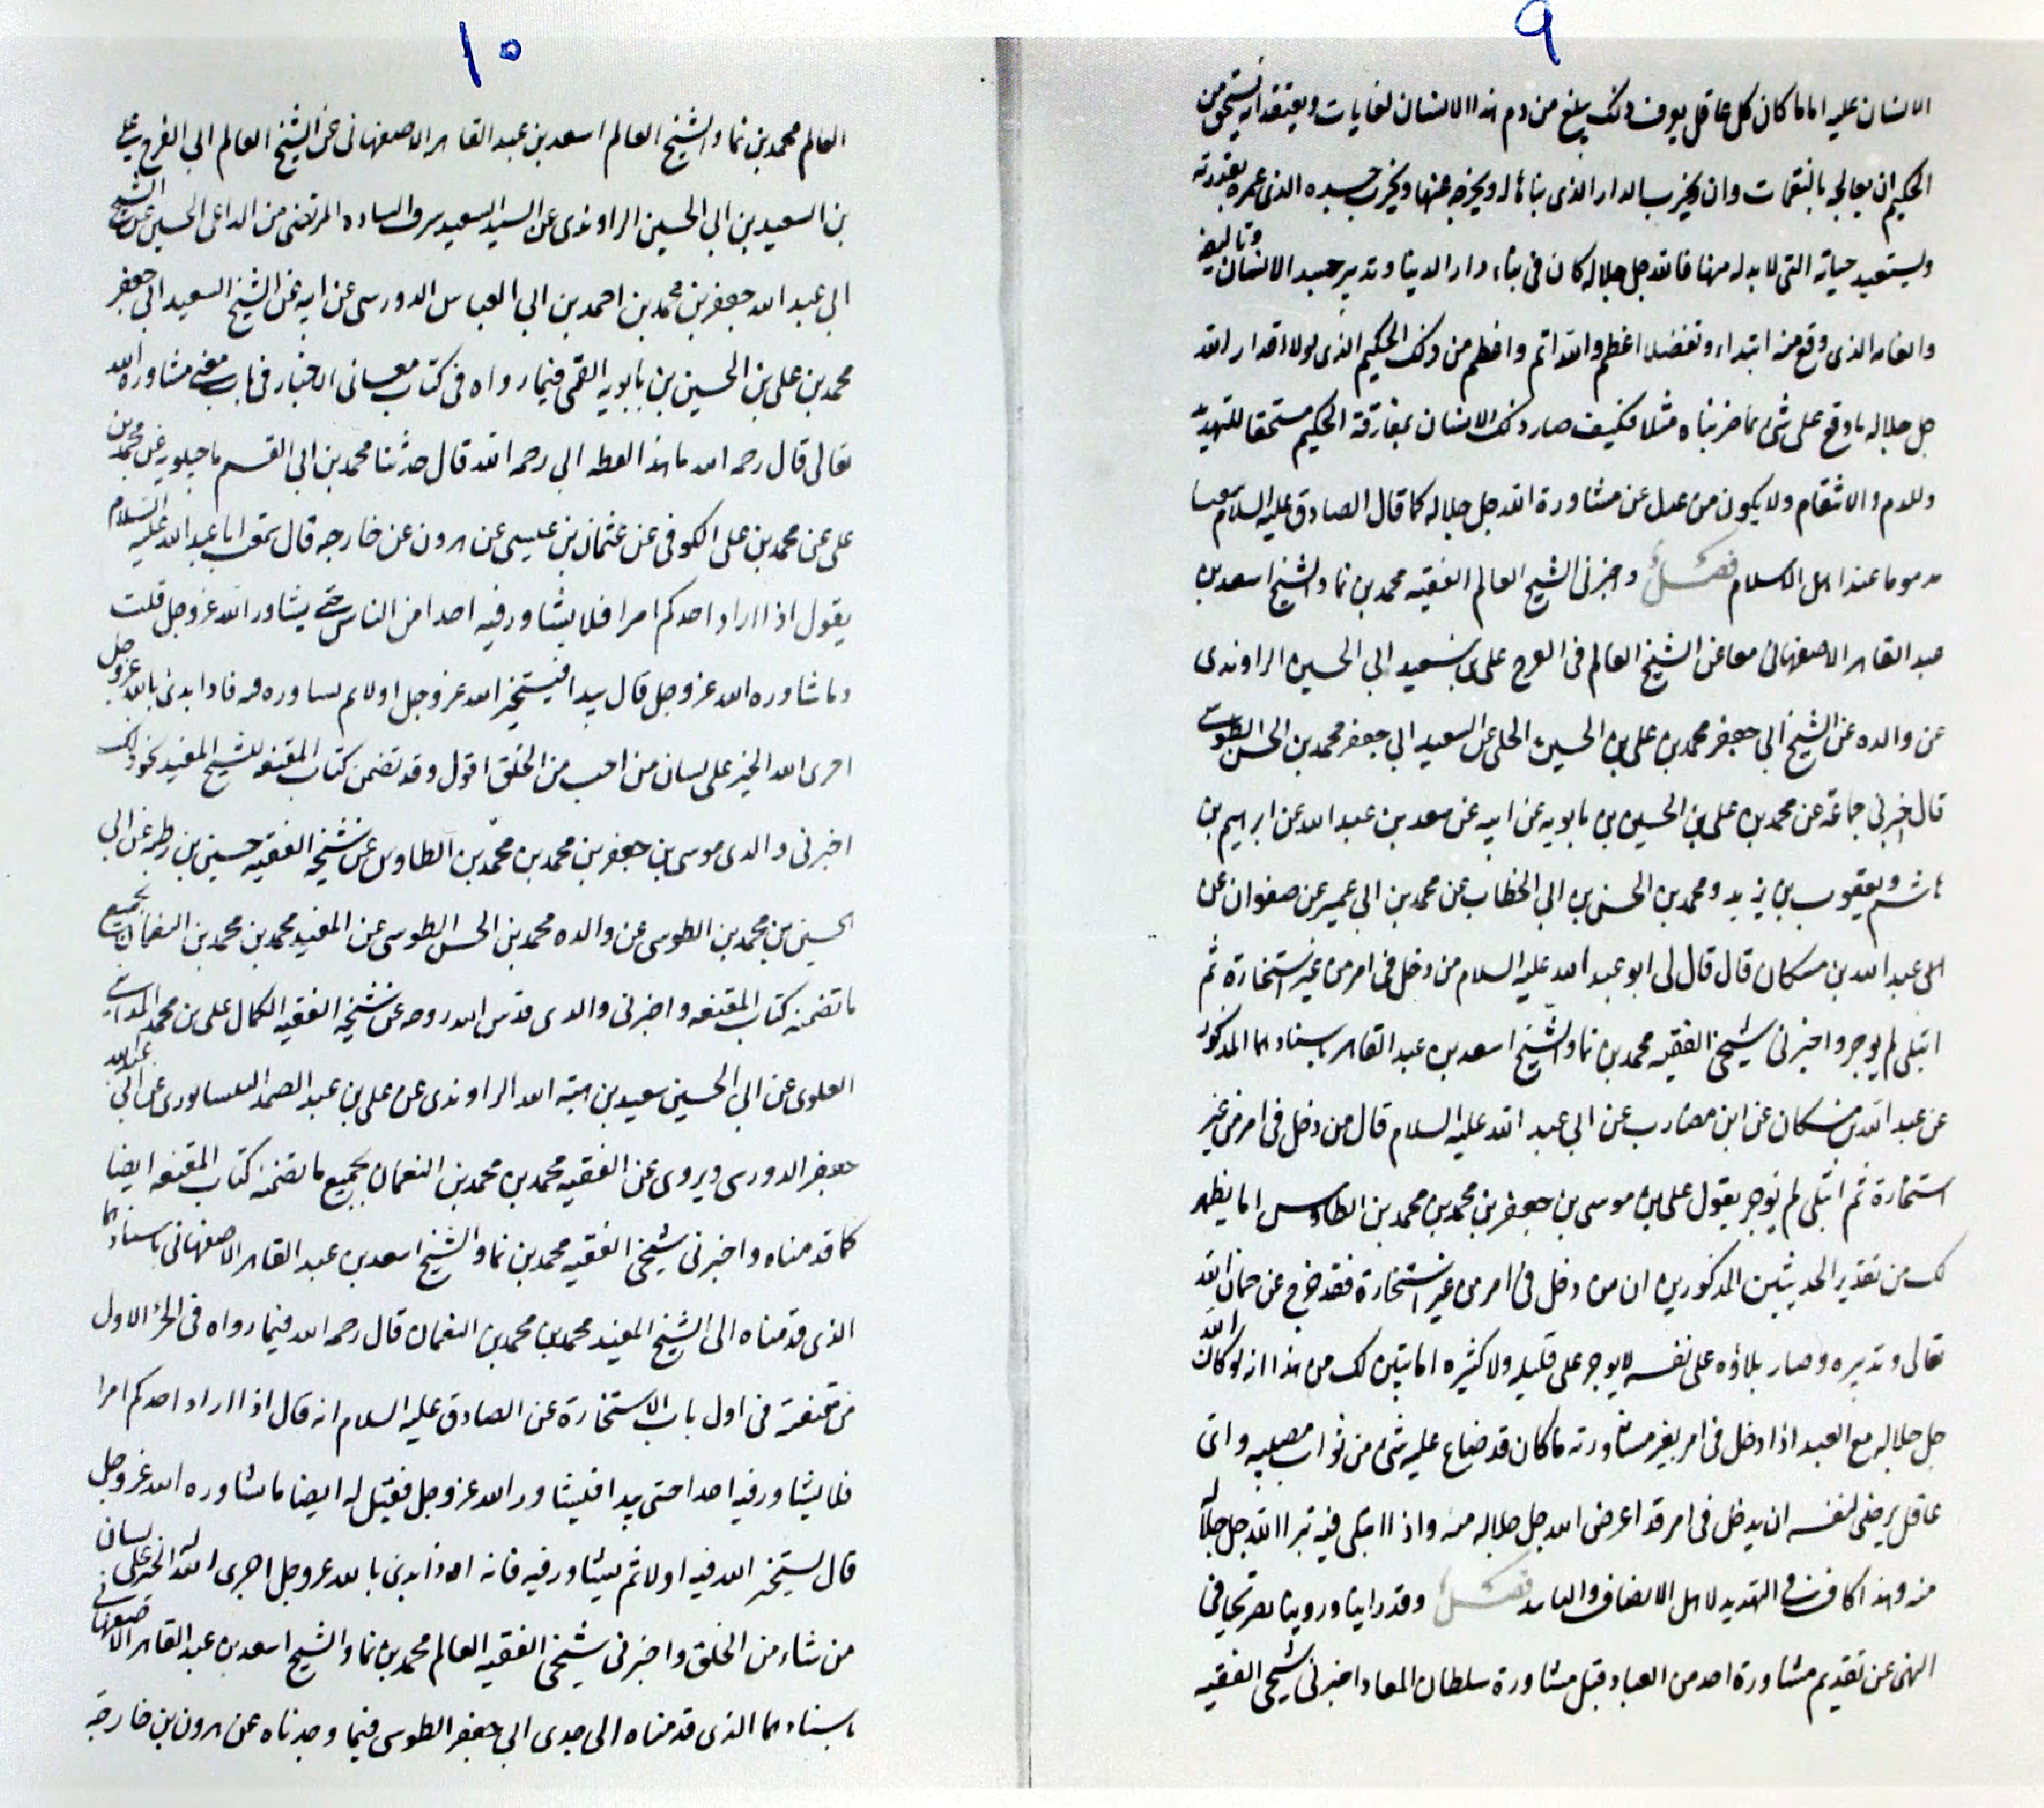 ٩
الانسان عليه اماما كان كل عاقل يعرف ذلك يبلغ من ذم هذا الانسان لغايات ويعتقد انه يستحق من
الحكيم ان يعالجه بالنقمات وان يخرب الدار الذى بناها له ويخرجه عنها ويخرب جسده الذى عمره بقدرته
ويستعيد حياته التى لا بد له منها فالله جل جلاله كان فى بناء دار الدنيا وتدبير جسد الانسان وتاليفه
والعامه الذى وقع منه ابتداء وتفضلا اعظم والله اتم واعظم من ذلك الحكيم الذى لولا اقدار الله
جل جلاله ما وقع على شئ مما ضربناه مثلا فكيف صار ذلك الانسان بمفارقة الحكيم مستحقا للتهديد
وللذم والانتقام ولا يكون من عدل عن مشاورة الله جل جلاله كما قال الصادق عليه السلام
مذموما عند اهل الاسلام فصل واخبرنى الشيخ العالم الفقيه محمد بن نما والشيخ اسعد بن
عبد القاهر الاصفهانى معا عن الشيخ العالم فى الفرج على بن سعيد ابى الحسين الراوندى
عن والده عن الشيخ ابى جعفر محمد بن على بن الحسين الحلى عن السعيد ابى جعفر محمد بن الحسن الطوسى
قال اخبرنى جماعة عن محمد بن على بن الحسين بن بابويه عن ابيه عن سعد بن عبد الله عن ابرهيم بن
هاشم ويعقوب بن يزيد ومحمد بن الحسين بن ابى الخطاب عن محمد بن ابى عمير عن صفوان عن
عبد الله بن مسكان قال قال لى ابو عبد الله عليه السلام من دخل فى امر من غير استخارة ثم
ابتلى لم يوجر واخبرنى شيخى الفقيه محمد بن نما والشيخ اسعد بن عبد القاهر باسنادهما المذكور
عن عبد الله بن مسكان عن ابن مضارب عن ابى عبد الله عليه السلام قال من دخل فى امر من غير
استخارة ثم ابتلى لم يوجر يقول على بن موسى بن جعفر بن محمد بن محمد بن الطاوس اما يظهر
لك من تقدير الحديثين المذكورين ان من دخل فى امر من غير استخارة فقد خرج عن ضمان الله
تعالى وتدبيره وصار بلاؤه على نفسه لا يوجر على قليله ولا كثيره اما يتبين لك من هذا انه لو كان الله
جل جلاله مع العبد اذا دخل فى امر بغير مشاورته ما كان قد ضاع عليه شئ من ثواب مصيبه واى
عاقل يرضى لنفسه ان يدخل فى امر قد اعرض الله جل جلاله منه واذا ابتلى فيه تبرا الله جل جلاله
منه وهذا كاف فى التهديد لاهل الانصاف فصل وقد راينا وروينا تصريحا فى
النهى عن تقديم مشاورة احد من العباد قبل مشاورة سلطان المعاد اخبرنى شيخى الفقيه
١٠
العالم محمد بن نما والشيخ العالم اسعد بن عبد القاهر الاصفهانى عن الشيخ العالم ابى الفرج على
بن السعيد بن ابى الحسين الراوندى عن السيد السعيد شرف الساده المرتضى بن الداعى الحسينى عن الشيخ
ابى عبد الله جعفر بن محمد بن احمد بن ابى العباس الدورسى عن ابيه عن الشيخ السعيد ابى جعفر
محمد بن على بن الحسين بن بابويه القمى فيما رواه فى كتاب معانى الاخبار فى باب معنى مشاورة الله
تعالى قال رحمه الله ما هذا لفظه ابى رحمه الله قال حدثنا محمد بن ابى القسم ماجيلويه عن محمد بن
على عن محمد بن على الكوفى عن عثمان بن عيسى عن هرون عن خارجه قال سمعت ابا عبد الله عليه السلام
يقول اذا اراد احدكم امرا فلا يشاور فيه احدا من الناس حتى يشاور الله عز وجل قلت
وما مشاوره الله عز وجل قال يبدا فيستخير الله عز وجل اولا ثم يشاوره فيه فاذا بدئ بالله عز وجل
اجرى الله الخير على لسان من احب من الخلق اقول وقد تضمن كتاب المقنعه للشيخ المفيد نحو ذلك
اخبرنى والدى موسى بن جعفر بن محمد بن محمد بن الطاوس عن شيخه الفقيه حسين بن رطبه عن ابى
الحسين بن محمد بن الطوسى عن والده محمد بن الحسن الطوسى عن المفيد محمد بن محمد بن النعمان بجميع
ما تضمنه كتاب المقنعه واخبرنى والدى قدس الله روحه عن شيخه الفقيه الكمال على بن محمد المداينى
العلوى عن ابى الحسين سعيد بن هبة الله الراوندى عن على بن عبد الصمد النيسابورى عن ابى عبد الله
جعفر الدورى ويروى عن الفقيه محمد بن محمد بن النعمان بجميع ما تضمنه كتاب المقنعه ايضا
كما قدمناه واخبرنى شيخى الفقيه محمد بن نما والشيخ اسعد بن عبد القاهر الاصفهانى باسنادهما
الذى قدمناه الى الشيخ المفيد محمد بن محمد بن النعمان قال رحمه الله فيما رواه فى الجزء الاول
من مقنعته فى اول باب الاستخارة عن الصادق عليه السلام انه قال اذا اراد احدكم امرا
فلا يشاور فيه احدا حتى يبدا فليشاور الله عز وجل فقيل له ايضا ما مشاوره الله عز وجل
قال يستخير الله فيه اولا ثم يشاور فيه فانه اذا بدئ بالله عز وجل اجرى الله له الخير على لسان
من شاء من الخلق واخبرنى شيخى الفقيه العالم محمد بن نما والشيخ اسعد بن عبد القاهر الاصفهانى
باسنادهما الذى قدمناه الى جدى ابى جعفر الطوسى فيما وجدناه عن هرون بن خارجة